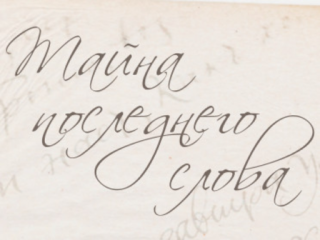 Тайна
последнего
слова